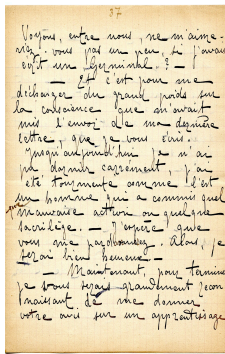 37
Voyons, entre nous, ne m'aime-
riez-vous pas un peu, si j'avais
écrit un Germinal ? —
— Et c'est pour me
décharger du grand poids sur
la conscience que m'avait
mis l'envoi de ma dernière
lettre, que je vous écris.
Jusqu'aujourd'hui je n'ai
pu dormir carrément, j'ai
été tourmenté comme l'est
un homme qui a commis quelque
mauvaise action ou quelque
sacrilège. — J'espère que
vous me pardonnerez. Alors, je
serai bien heureux —
— Maintenant, pour terminer
je vous serais grandement recon-
naissant de me donner
votre avis sur un apprentissage